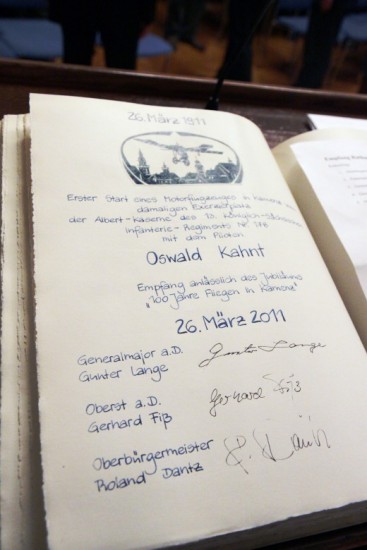 26. März 1911
Erster Start eines Motorflugzeuges in Kamenz am
damaligen Exerzierplatz
der Albert-Kaserne des 13. Königlich-Sächsischen
Infanterie-Regiments Nr. 178
mit dem Piloten
Oswald Kahnt
Empfang anlässlich des Jubiläums
„100 Jahre Fliegen in Kamenz"
26. März 2011
Generalmajor a.D.
Günter Lange
Oberst a.D.
Gerhard Fiß
Oberbürgermeister
Roland Dantz